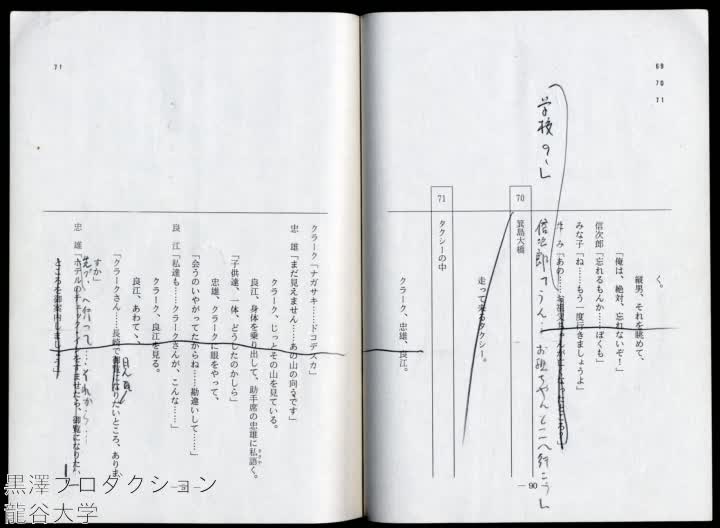 69
70
71
く。
縦男、それを眺めて、
「俺は、絶対、忘れないぞ!」
信次郎「忘れるもんか……ぼくも」
みな子「ね……もう一度行きましょうよ」
たみ「あの……お祖父ちゃんが亡くなったところ?」
「学校の」
信次郎「うん… お祖父ちゃんとこへ行こう」
70
箕島大橋
走って来るタクシー。
71
タクシーの中
クラーク、忠雄、良江。
— 90 —
71
クラーク「ナガサキ……ドコデスカ」
忠 雄「まだ見えません……あの山の向うです」
クラーク、じっとその山を見ている。
良江、身体を乗り出して、助手席の忠雄に私語く。
ささや
「子供達、一体、どうしたのかしら」
忠雄、クラークに眼をやって、
「会うのいやがってたからね……勘違いして……」
良 江「私達も……クラークさんが、こんな……」
クラーク、良江を見る。
良江、あわてゝ、
「クラークさん……長崎で御覧になりたいところ、ありま
すか」
先づ へ行って…それから…
忠 雄「ホテルのチェック・インをすませたら、御覧になりた
ところを御案内しましょう」
— 91 —
黒澤プロダクション
龍谷大学